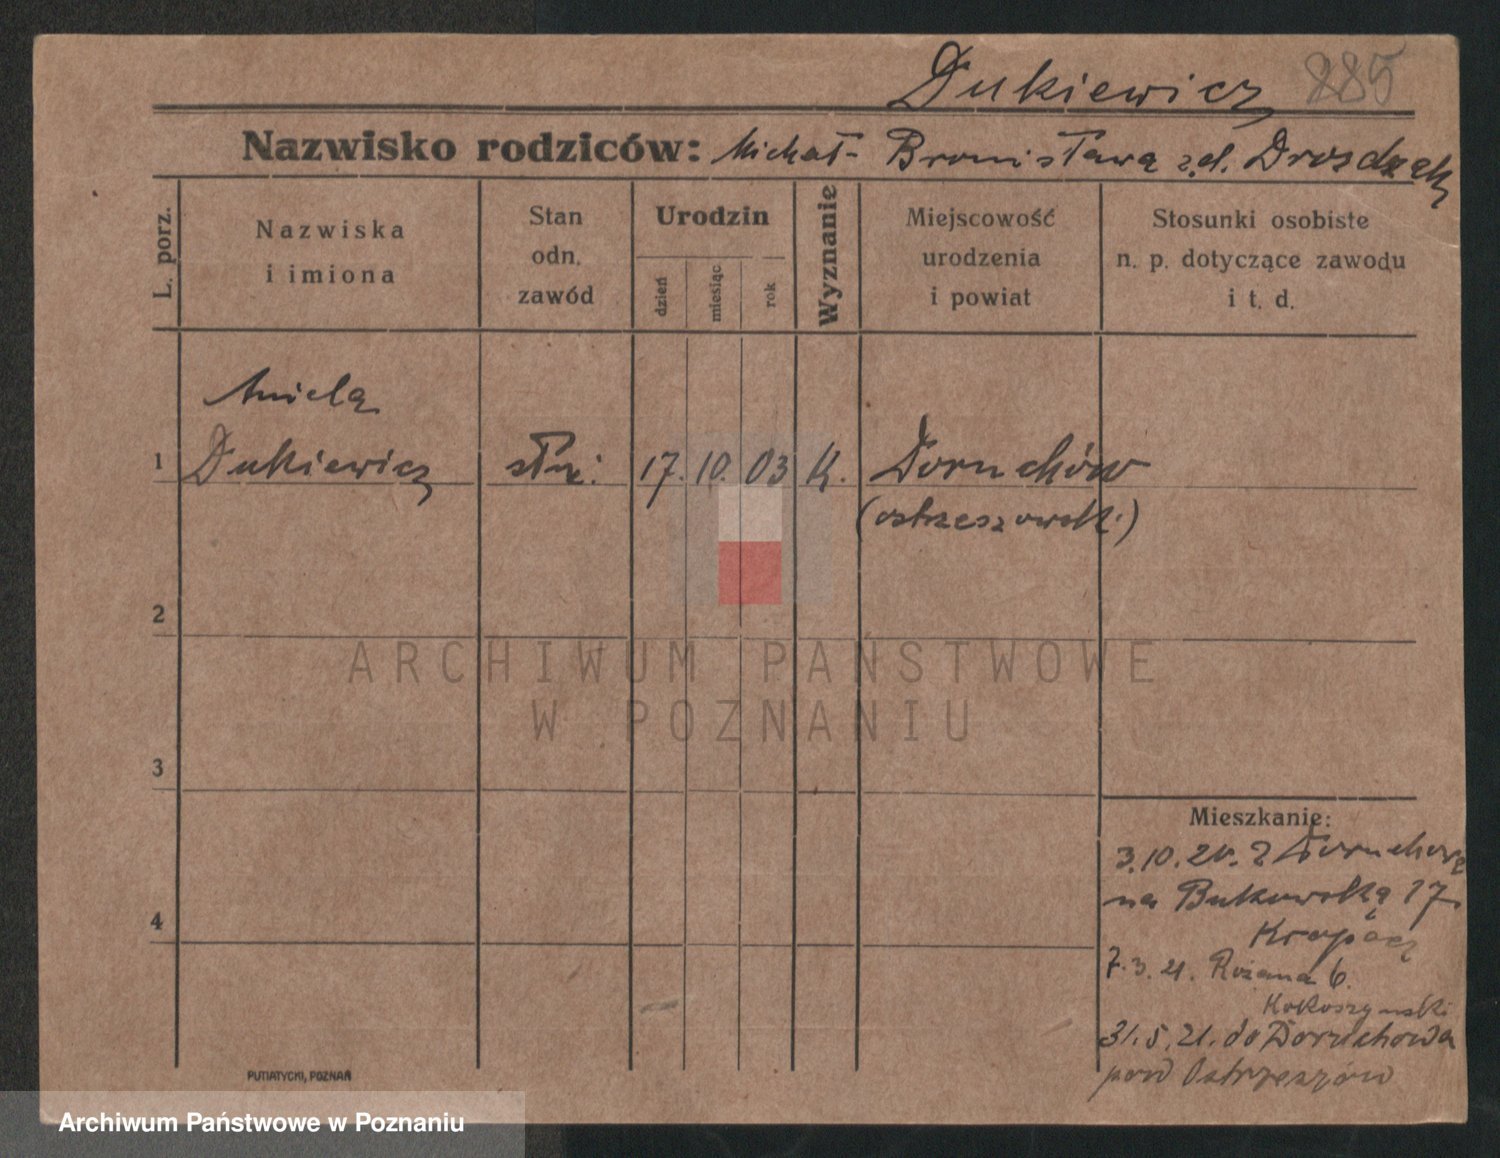 Dukiewicz 885
Nazwisko rodziców: Michał - Bronisława z d. Drozdzak
L. porz.
Nazwiska
i imiona
Stan
odn.
zawód
Urodzin
dzień
miesiąc
rok
Wyznanie
Miejscowość
urodzenia
i powiat
Stosunki osobiste
n. p. dotyczące zawodu
i t. d.
Aniela
1 Dukiewicz służ: 17. 10. 03 K. Doruchów
(ostrzeszowski)
2
ARCHIWUM PAŃSTWOWE
W POZNANIU
3
Mieszkanie:
3.10.20. z Doruchowa
na Bukowską 17.
4
7.3.21. Różana 6.
Kokoszyński
31.5.21. do Doruchowa
pow Ostrzeszów
PUTIATYCKI, POZNAŃ
Archiwum Państwowe w Poznaniu